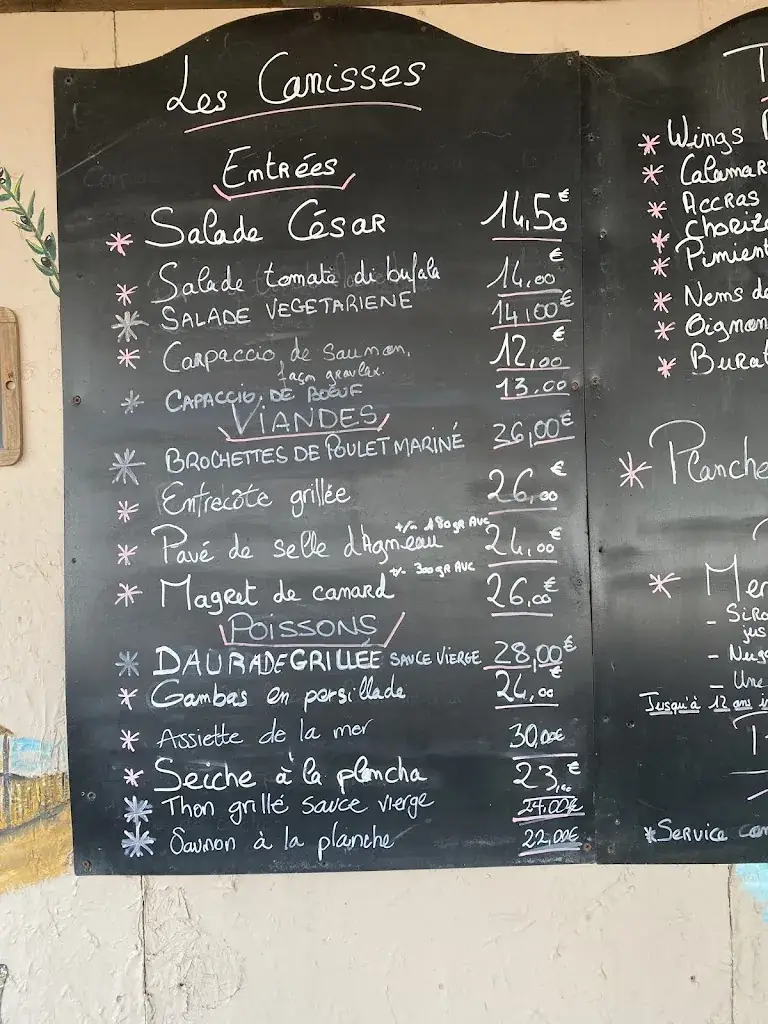 Les Canisses
Entrées
* Salade César 14,50€
* Salade tomate di bufala 14,00€
* SALADE VEGETARIENE 14,00€
* Carpaccio de Saumon, 12,00€
façon gravlax.
* CAPACCIO DE BOEUF 13,00
VIANDES
* BROCHETTES DE POULET MARINÉ 36,00€
* Entrecôte grillée 26,00€
+/- 180gR AVC
* Pavé de selle d'Agneau 24,00€
+/- 300gR AVC
* Magret de canard 26,00€
POISSONS
* DAURADE GRILLÉE SAUCE VIERGE 28,00€
* Gambas en persillade 24,00€
* Assiette de la mer 30,00€
* Seiche à la plancha 23,00€
* Thon grillé sauce vierge 24,00€
* Saumon à la planche 22,00€
* Wings
* Calamar
* ACCRAS
* CHORIZO
* Pimient
* Nems de
* Oignon
* BURAT
* Planche
* Men
- SIRO
jus
- Nugg
- Une
Jusqu'à 12 ans in
*SERVICE con